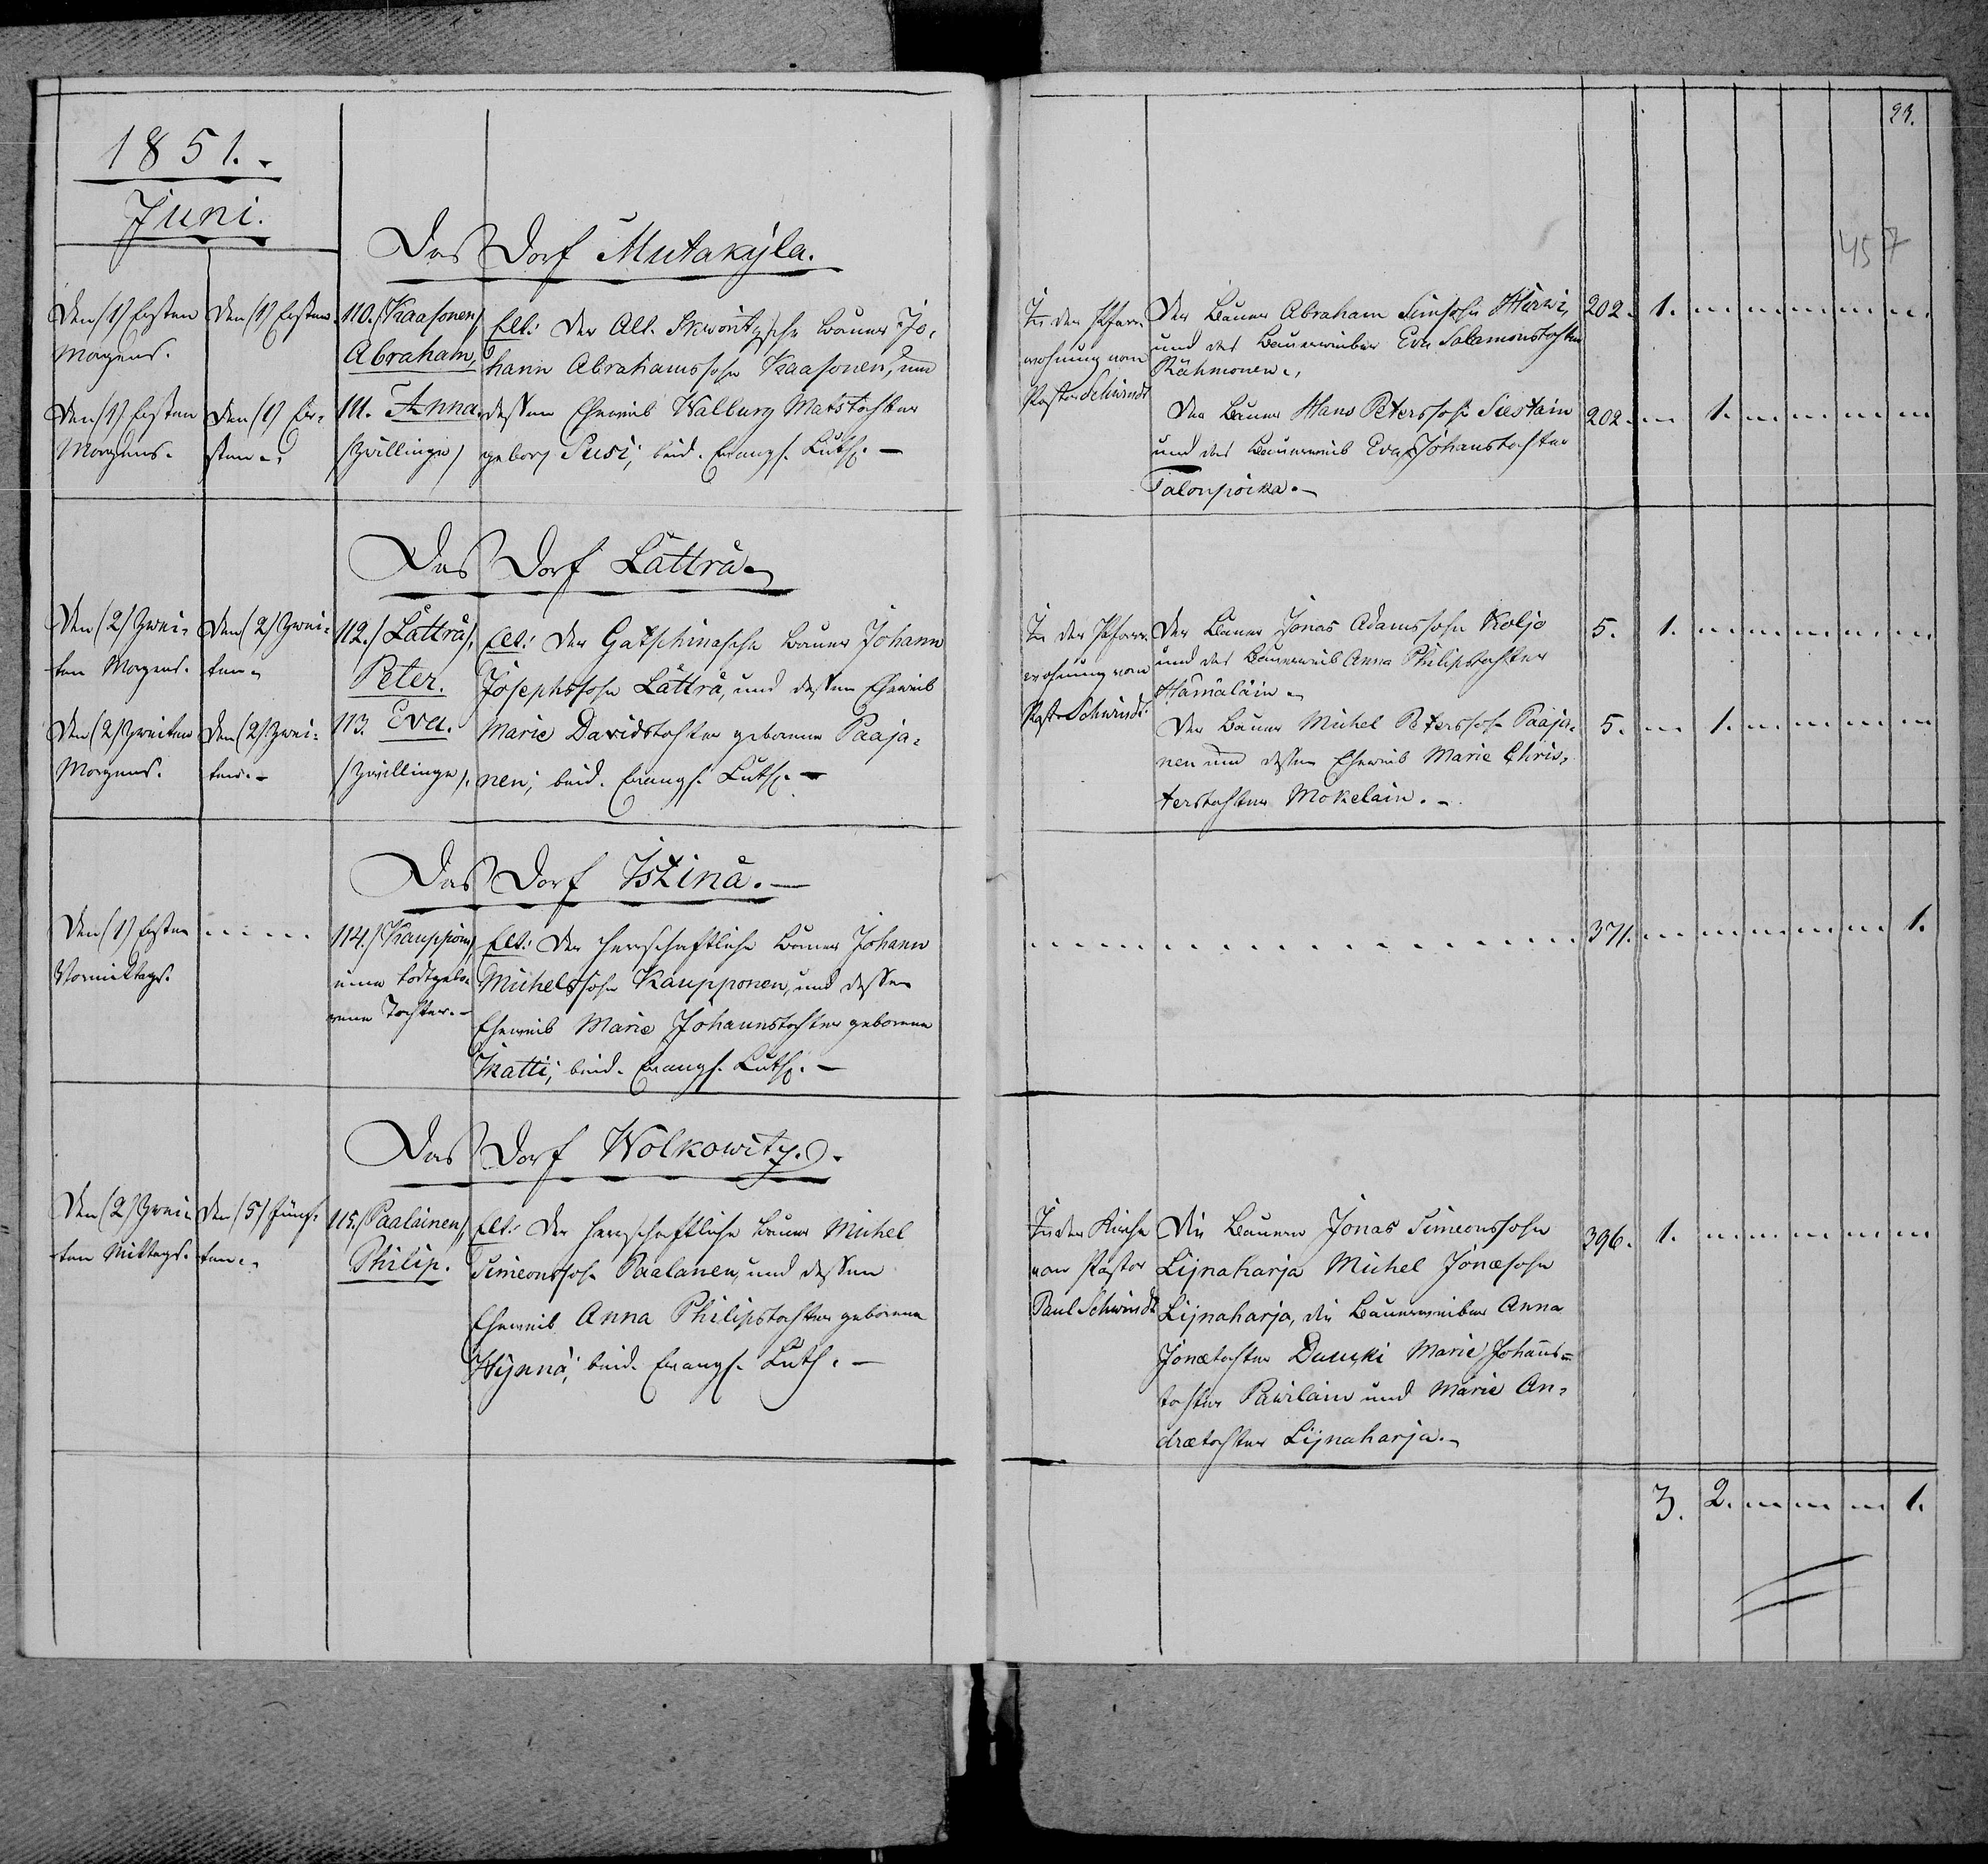 1851.
Juni.
Das Dorf Mutakÿla.
Den (1) Ersten
Morgens.
Den (1) Ersten.
110. (Kaasonen),
Abraham,
Elt: Der Alt. Skworitzsche Bauer Jo-
hann Abrahamssohn Kaasonen, und
Den (1) Ersten
Morgens.
Den (1) Er-
sten.
111. Anna.
(Zwillinge)
dessen Eheweib Walburg Matstochter
gebor. Susi; beid. Evangl. Luth. —
Das Dorf Lätträ.
Den (2) Zwei-
ten Morgens.
Den (2) Zwei-
ten.
112. (Lätträ),
Peter.
Elt: Der Gatschinasche Bauer Johann
Josephssohn Lätträ, und dessen Eheweib
Den (2) Zweiten
Morgens.
Den (2) Zwei-
ten. –
113. Eva.
(Zwillinge).
Marie Davidstochter geborene Paaja-
nen; beid. Evangl. Luth. —
Das Dorf Iszinä. —
Den (1) Ersten
Vormittags.
114. (Kauppoin),
eine todtgebo-
rene Tochter. –
Elt: Der herrschaftliche Bauer Johann
Michelssohn Kaupponen, und dessen
Eheweib Marie Johannstochter geborene
Matti; beid. Evangl. Luth. —
Das Dorf Wolkowitz.
Den (2) Zwei-
ten Mittags.
Den (5) Fünf-
ten.
115. (Paalainen),
Philip.
Elt: Der herrschaftliche Bauer Michel
Simeonssohn Paalanen, und dessen
Eheweib Anna Philipstochter geborene
Hÿnnä; beid. Evangl. Luth. —
93.
457
In der Pfarr-
wohnung vom
Pastor Schwindt
Der Bauer Abraham Simssohn Hirwi,
und das Bauerweib Eva Salamonstochter
Rähmonen.
202. 1.
Der Bauer Hans Peterssohn Siestain
und das Bauerweib Eva Johanstochter
Talonpoika. –
202. 1.
In der Pfarr-
wohnung vom
Past. Schwindt
Der Bauer Jonas Adamssohn Koljo
und das Bauerweib Anna Philipstochter
Hämäläin.
5. 1.
Der Bauer Michel Peterssohn Paaja-
nen und dessen Eheweib Marie Chris-
terstochter Mokelain. –
5. 1.
371. 1.
In der Kirche
vom Pastor
Paul Schwindt
Die Bauern Jonas Simeonssohn
Lijnaharja Michel Jonæsohn
Lijnaharja, die Bauerweiber Anna
Jonætochter Marie Johanns-
tochter Pawilain und Marie An-
drætochter Lijnaharja. –
396. 1.
3. 2. 1.